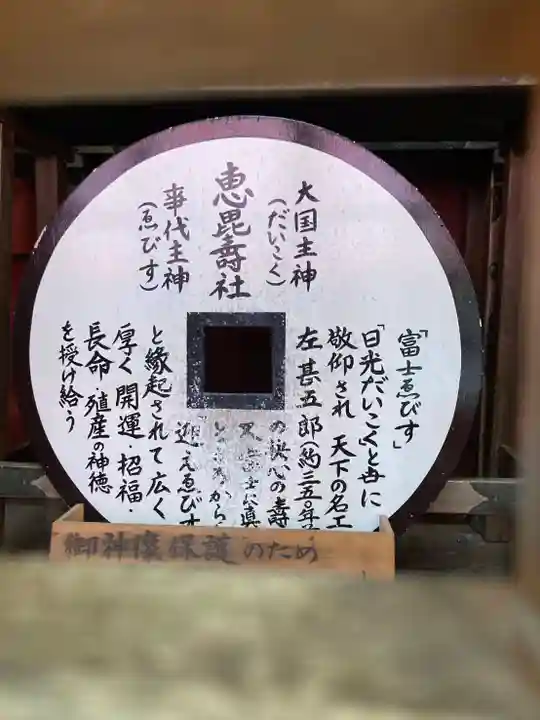 恵毘壽社
大国主神
(だいこく)
事代主神
(ゑびす)
「富士ゑびす」
「日光だいこく」と世に
敬仰され 天下の名工
左甚五郎(約三五〇年
の決心の壽
迎えゑびす
と縁起されて広く
厚く開運・招福・
長命・殖産の神徳
を授け給う
御神像保護のため